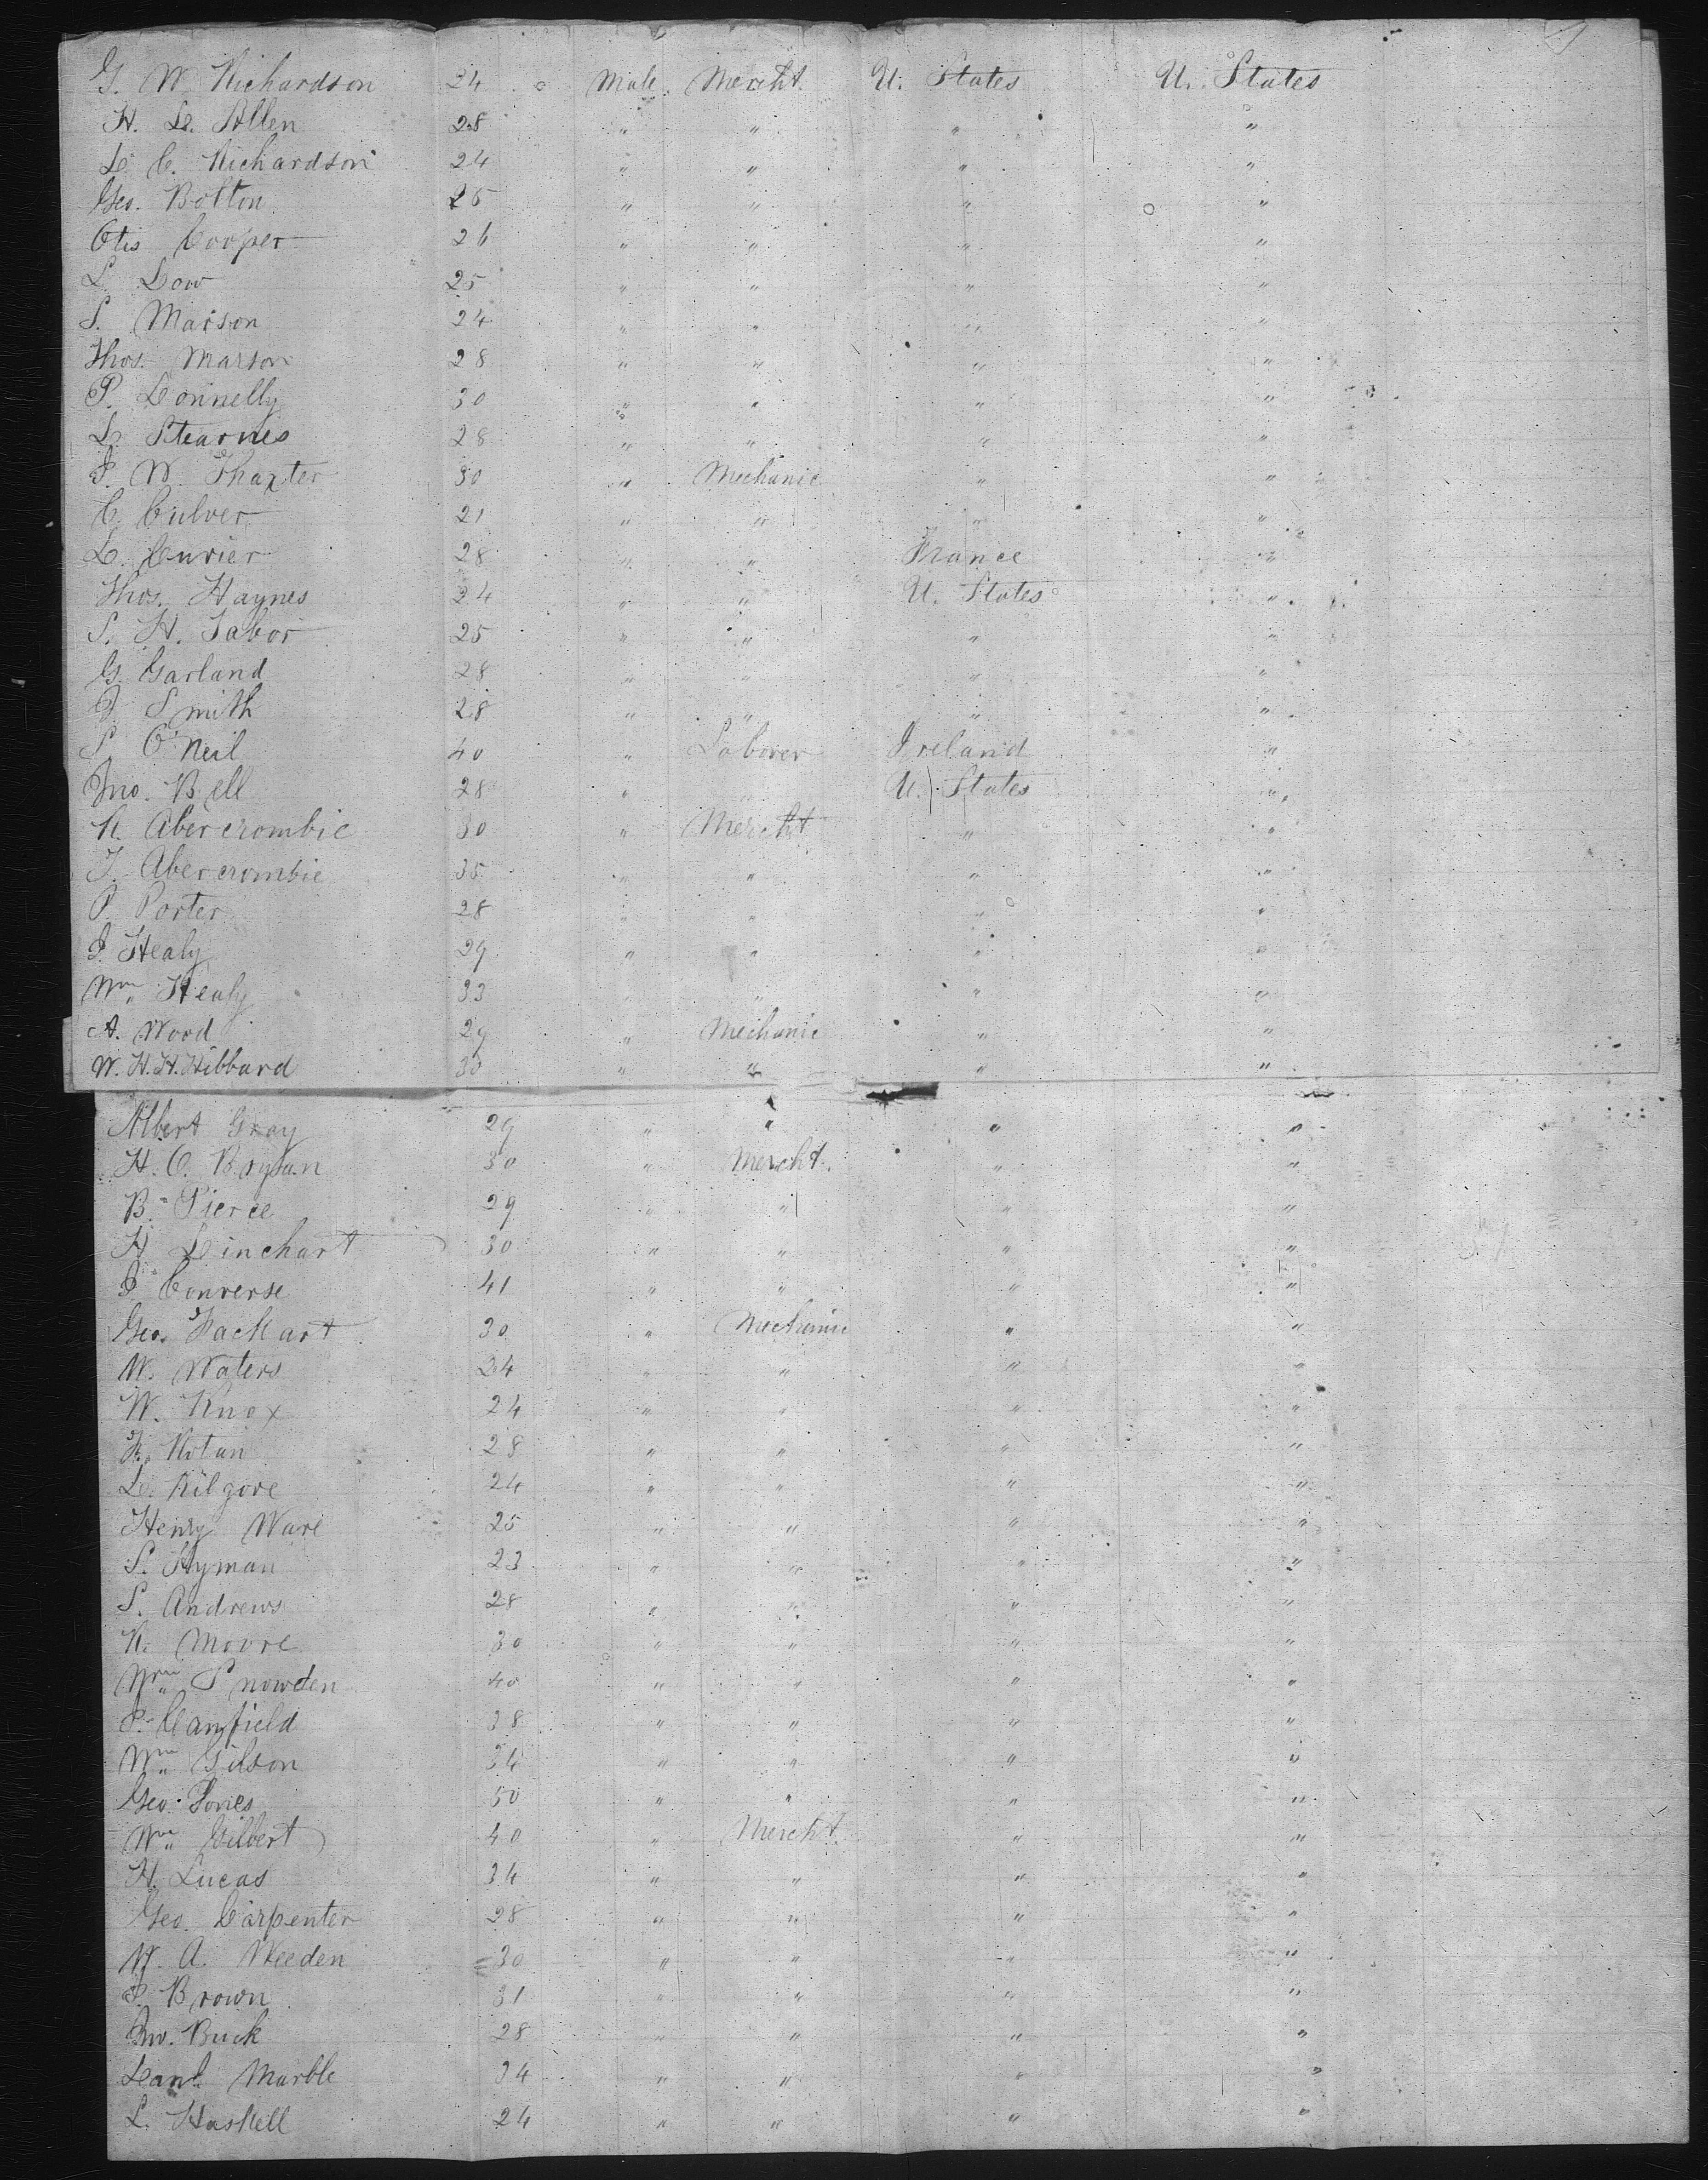 G. W. Richardson 24 Male Mercht. U. States U. States
H. D. Allen 28 " " " "
D. C. Richardson 24 " " " "
Geo. Bolton 25 " " " "
Otis Cooper 26 " " " "
L. Dow 25 " " " "
S. Marson 24 " " " "
Thos. Marson 28 " " " "
P. Donnelly 30 " " " "
D. Stearnes 28 " " " "
J. W. Thaxter 30 " Mechanic " "
C. Culver 21 " " " "
D. Curier 28 " " France "
Thos. Haynes 24 " " U. States "
S. H. Tabor 25 " " " "
G. Garland 28 " " " "
J. Smith 28 " " " "
S. O'Neil 40 " Laborer Ireland "
Jno. Bell 28 " " U. States "
R. Abercrombie 30 " Mercht " "
T. Abercrombie 35 " " " "
P. Porter 28 " " " "
J. Healy 29 " " " "
Wm. Healy 33 " " " "
A. Wood 29 " Mechanic " "
W. H. H. Hibbard 30 " " " "
Albert Gray 29 " " " "
H. C. Brysan 30 " Mercht. " "
B. Pierce 29 " " " "
H. Dinehart 30 " " " "
J. Converse 41 " " " "
Geo. Hackart 30 " Mechanic " "
W. Waters 24 " " " "
W. Knox 24 " " " "
F. Rotan 28 " " " "
D. Kilgore 24 " " " "
Henry Ware 25 " " " "
S. Hyman 23 " " " "
S. Andrews 28 " " " "
R. Moore 30 " " " "
Wm. Snowden 40 " " " "
P. Canfield 38 " " " "
Wm. Gilson 34 " " " "
Geo. Jones 50 " " " "
Wm. Gilbert 40 " Mercht. " "
H. Lucas 34 " " " "
Geo. Carpenter 28 " " " "
W. A. Weeden 30 " " " "
J. Brown 31 " " " "
Jno. Buck 28 " " " "
Danl. Marble 34 " " " "
L. Haskell 24 " " " "